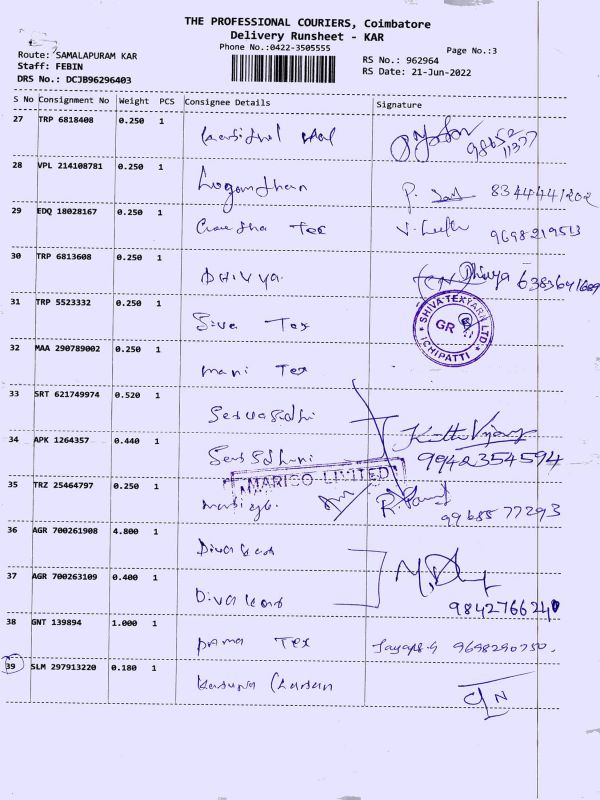 THE PROFESSIONAL COURIERS, Coimbatore
Delivery Runsheet - KAR
Phone No.:0422-3505555
Page No.:3
Route: SAMALAPURAM KAR
RS No.: 962964
Staff: FEBIN
RS Date: 21-Jun-2022
DRS No.: DCJB96296403
S No Consignment No Weight PCS Consignee Details Signature
27 TRP 6818408 0.250 1
28 VPL 214108781 0.250 1 Logandhan 8344441202
29 EDQ 18028167 0.250 1 Tex 9698219513
30 TRP 6813608 0.250 1 DHIVYA Dhivya 6383641689
31 TRP 5523332 0.250 1 Siva Tex
SHIVA TEXYARN LTD
GR
ICHIPATTI
32 MAA 290789002 0.250 1 Mani Tex
33 SRT 621749974 0.520 1
34 APK 1264357 0.440 1 9942354594
MARICO LIMITED
35 TRZ 25464797 0.250 1 9968577293
36 AGR 700261908 4.800 1
37 AGR 700263109 0.400 1 9842766240
38 GNT 139894 1.000 1 Tex 9698290750.
39 SLM 297913220 0.180 1